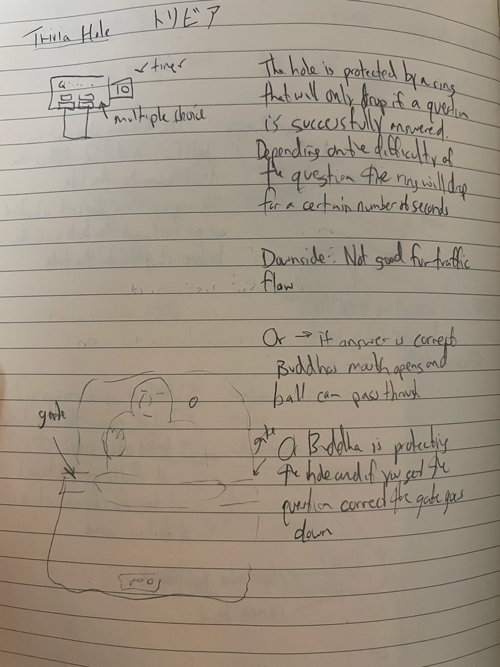 Trivia Hole トリビア
Q....
10
timer
multiple choice
The hole is protected by a ring
that will only drop if a question
is successfully answered.
Depending on the difficulty of
the question the ring will drop
for a certain number of seconds
Downside: Not good for traffic
flow
Or → if answer is correct
Buddhas mouth opens and
ball can pass through
gate
gate
A Buddha is protecting
the hole and if you get the
question correct the gate goes
down